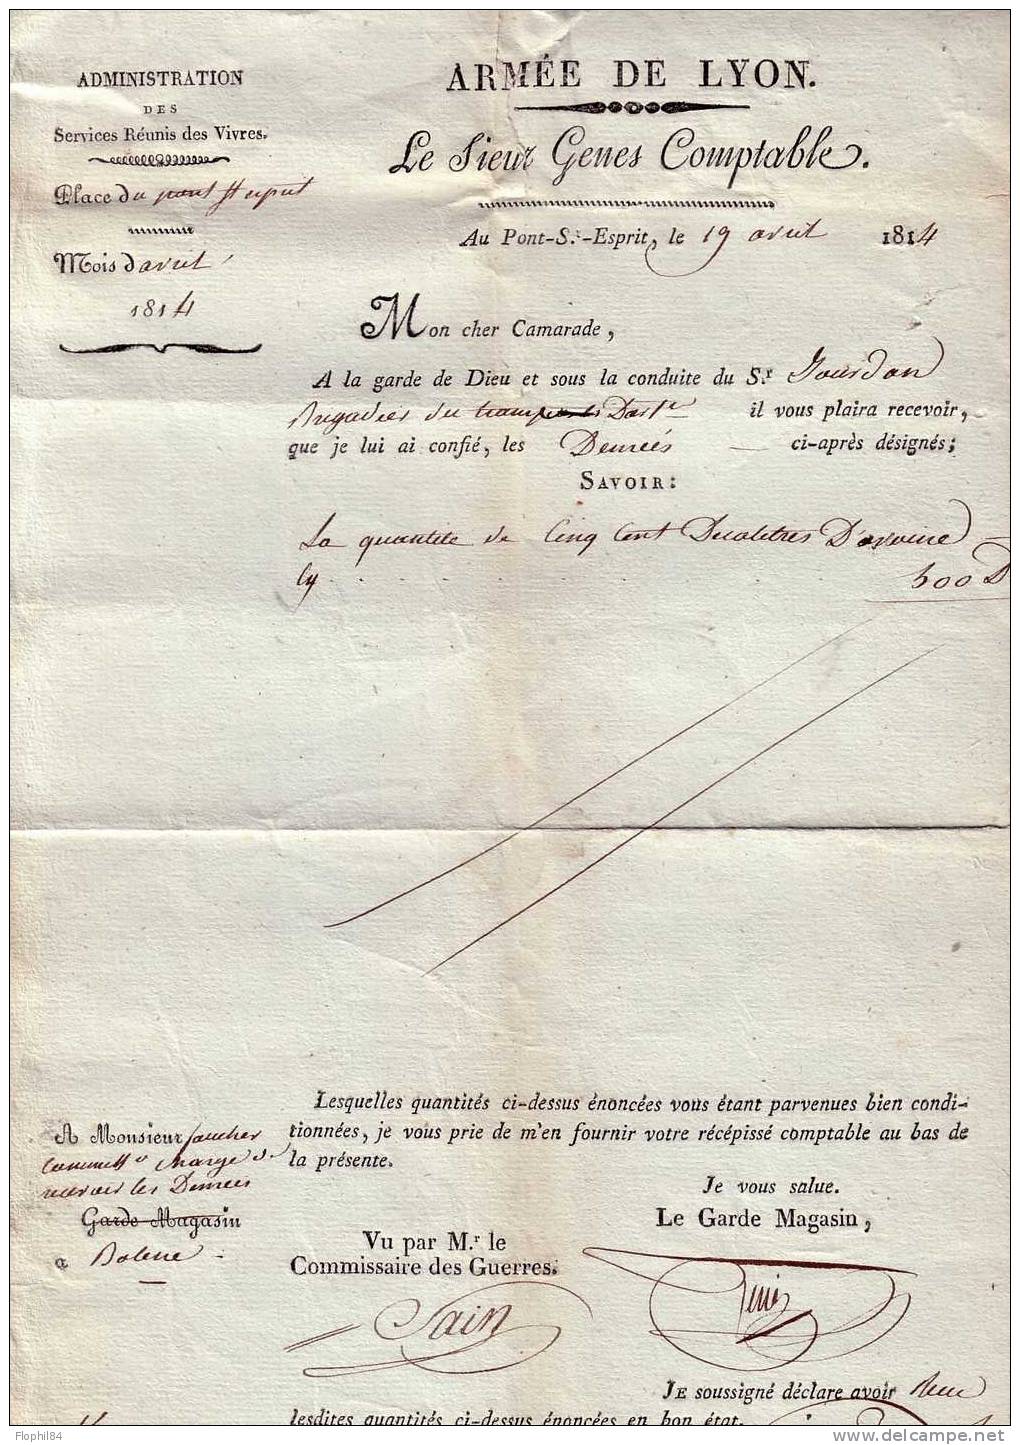 ADMINISTRATION
DES
Services Réunis des Vivres.
Place du pont St esprit
Mois d'avril
1814
ARMÉE DE LYON.
Le Sieur Genes Comptable.
Au Pont-S.t-Esprit, le 19 avril 1814
Mon cher Camarade,
A la garde de Dieu et sous la conduite du S.r Jourdan
Brigadier du train d'art.ie il vous plaira recevoir,
que je lui ai confié, les Denrées ci-après désignés;
SAVOIR:
La quantité de Cinq Cent Decalitres D'avoine
Cy . . . . . . . . . . 500 D
Lesquelles quantités ci-dessus énoncées vous étant parvenues bien condi-
tionnées, je vous prie de m'en fournir votre récépissé comptable au bas de
la présente.
Je vous salue.
Le Garde Magasin,
Genes
Vu par M.r le
Commissaire des Guerres.
Sain
A Monsieur faucher
Charge de
recevoir les Denrées
Garde-Magasin
a Bolene
JE soussigné déclare avoir Recu
lesdites quantités ci-dessus énoncées en bon état.
Flophil84
www.delcampe.net